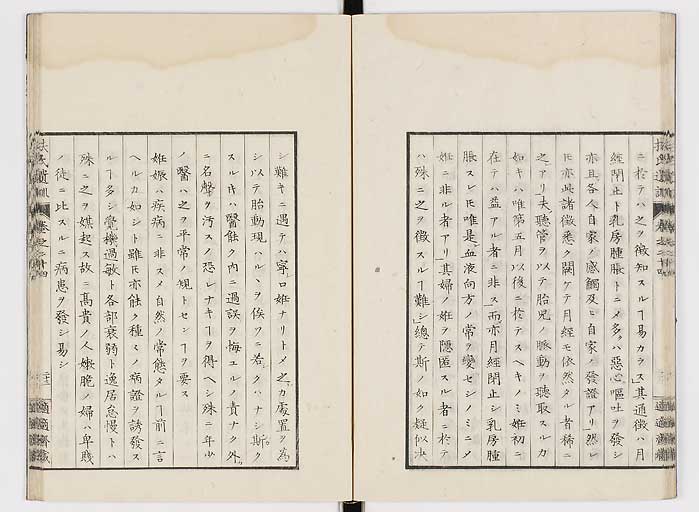 ニ於テハ之ヲ徴知スルヿ易カラス其通徴ハ月
經閉止ト乳房腫脹トニメ多クハ惡心嘔吐ヲ發シ
亦且各人自家ノ感觸及ヒ自家ノ發證アリ然レ
𪜈亦此諸徴悉ク闕ケテ月經モ依然タル者稀ニ
之アリ夫聽管ヲ以テ胎兒ノ脈動ヲ聽取スルカ
如キハ唯第五月以後ニ於テスヘキノミ姙初ニ
在テハ益アル者ニ非ス而亦月經閉止シ乳房腫
脹スレ𪜈唯是血液向方ノ常ヲ變セシノミニメ
姙ニ非ル者アリ其婦ノ姙ヲ隱匿スル者ニ於テ
ハ殊ニ之ヲ徴スルヿ難シ總テ斯ノ如ク疑似决
シ難キニ遇テハ寧ロ姙ナリトメ之カ處置ヲ為
シ以テ胎動現ハルヽヲ俟フニ若クハナシ斯ク
スル𪜈ハ醫蝕ク内ニ過誤ヲ悔ユルノ責ナク外
ニ名聲ヲ汚スノ恐レナキヿヲ得ヘシ殊ニ年少
ノ醫ハ之ヲ平常ノ規トセンヿヲ要ス
姙娠ハ疾病ニ非スメ自然ノ常態タルヿ前ニ言
ヘルカ如シト雖𪜈亦能ク種々ノ病證ヲ誘發ス
ルヿ多シ覺機過敏ト各部衰弱ト逸居怠慢トハ
殊ニ之ヲ媒起ス故ニ高貴ノ人嫩脆ノ婦ハ卑賤
ノ徒ニ比スルニ病患ヲ發シ易シ
扶氏遺訓
卷之二十四
適適齋藏